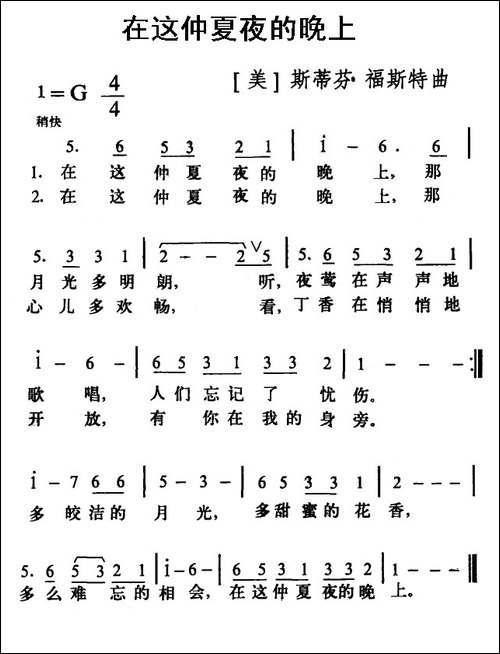 在这仲夏夜的晚上
1=G 4/4
[美] 斯蒂芬·福斯特曲
稍快
5. 6 5 3 2 1 | i - 6. 6
1. 在 这 仲 夏 夜 的 晚 上, 那
2. 在 这 仲 夏 夜 的 晚 上, 那
5. 3 3 1 | 2 - - 2 5 | 5. 6 5 3 2 1 |
月 光 多 明 朗, 听, 夜 莺 在 声 声 地
心 儿 多 欢 畅, 看, 丁 香 在 悄 悄 地
i - 6 - | 6 5 3 1 3 3 2 | 1 - - - :||
歌 唱, 人 们 忘 记 了 忧 伤。
开 放, 有 你 在 我 的 身 旁。
i - 7 6 6 | 5 - 3 - | 6 5 3 3 1 | 2 - - - |
多 皎 洁 的 月 光, 多 甜 蜜 的 花 香,
5. 6 5 3 2 1 | i - 6 - | 6 5 3 1 3 3 2 | 1 - - - ||
多 么 难 忘 的 相 会, 在 这 仲 夏 夜 的 晚 上。